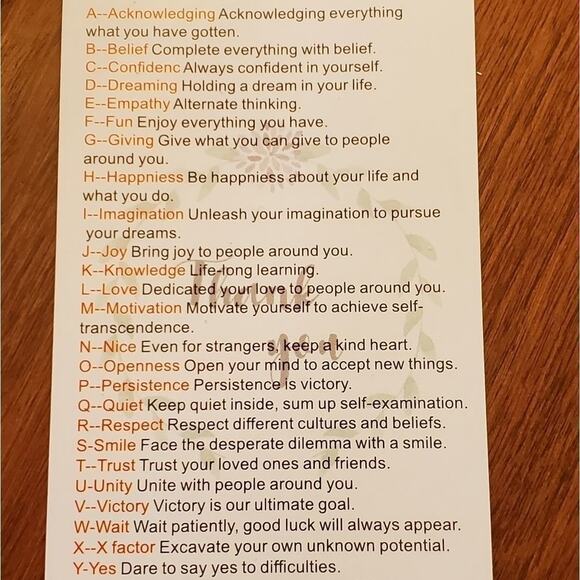 A--Acknowledging Acknowledging everything
what you have gotten.
B--Belief Complete everything with belief.
C--Confidenc Always confident in yourself.
D--Dreaming Holding a dream in your life.
E--Empathy Alternate thinking.
F--Fun Enjoy everything you have.
G--Giving Give what you can give to people
around you.
H--Happniess Be happniess about your life and
what you do.
I--Imagination Unleash your imagination to pursue
your dreams.
J--Joy Bring joy to people around you.
K--Knowledge Life-long learning.
L--Love Dedicated your love to people around you.
Thank
M--Motivation Motivate yourself to achieve self-
transcendence.
N--Nice Even for strangers, keep a kind heart.
you
O--Openness Open your mind to accept new things.
P--Persistence Persistence is victory.
Q--Quiet Keep quiet inside, sum up self-examination.
R--Respect Respect different cultures and beliefs.
S-Smile Face the desperate dilemma with a smile.
T--Trust Trust your loved ones and friends.
U-Unity Unite with people around you.
V--Victory Victory is our ultimate goal.
W-Wait Wait patiently, good luck will always appear.
X--X factor Excavate your own unknown potential.
Y-Yes Dare to say yes to difficulties.